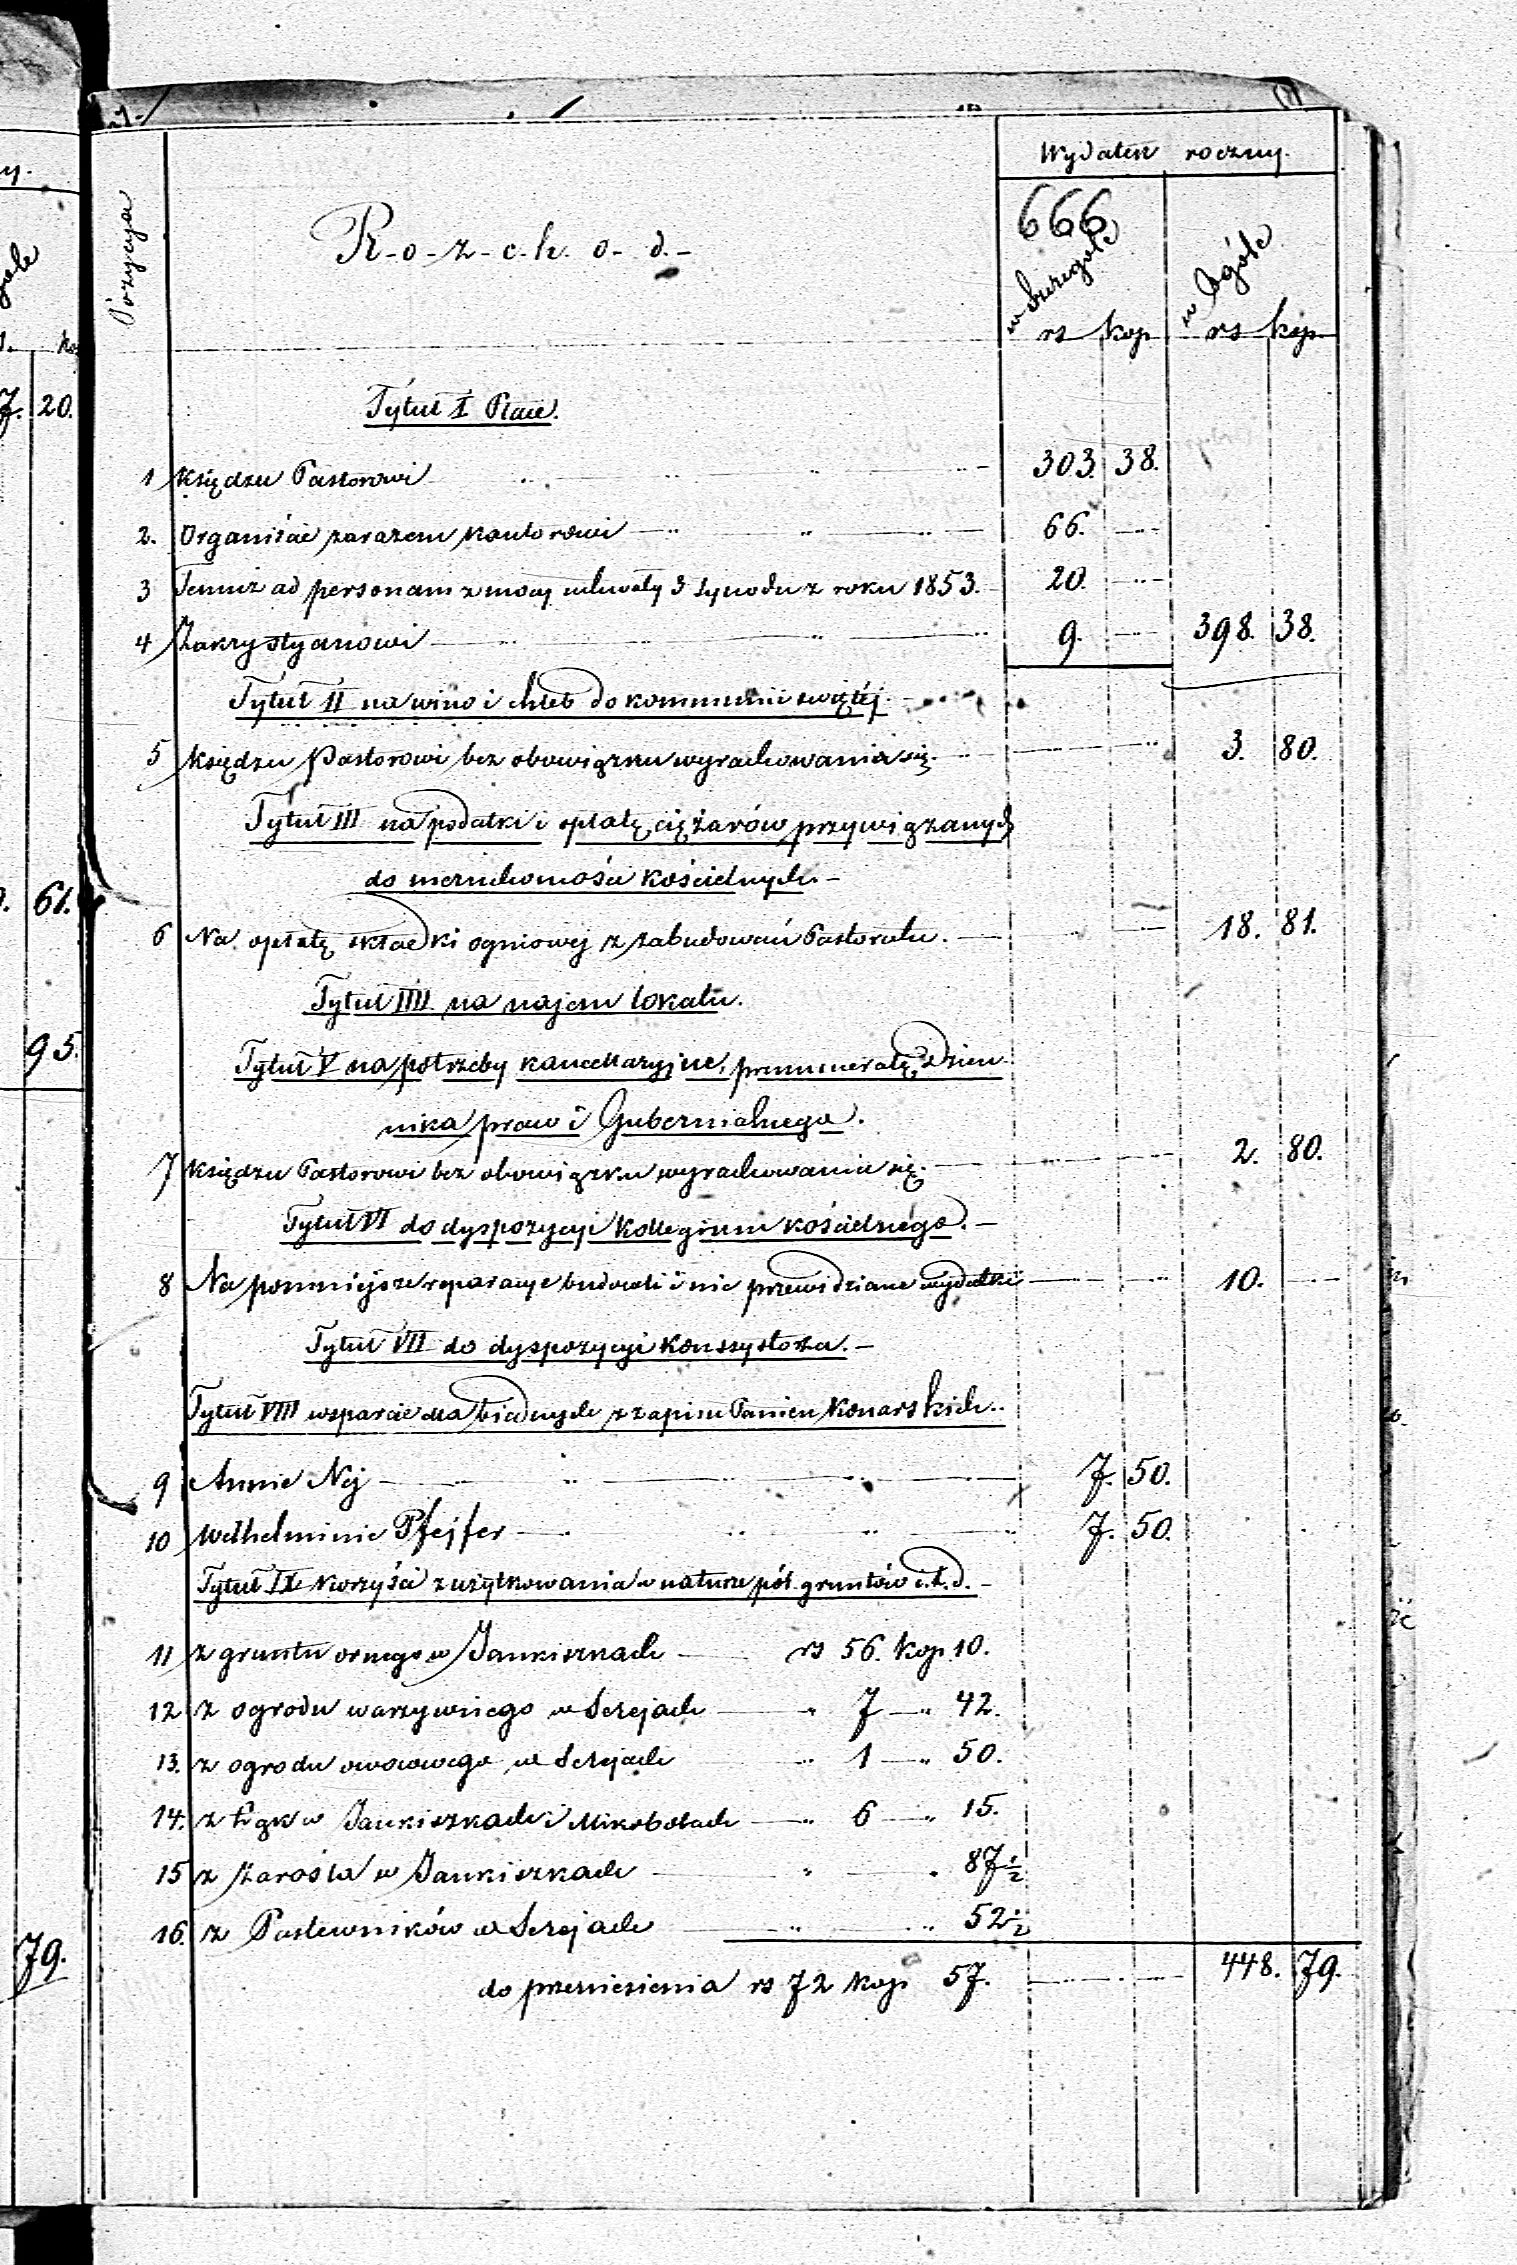 Wydatek roczny.
666
Pozycya
R-o-z-c-h. o- d.-
w Szczególe
w Ogóle
rs kop rs kop.
Tytuł I Płace.
1 Księdzu Pastorowi 303. 38.
2. Organiście zarazem Kantorowi 66.
3 Temuż ad personam z mocy uchwały 3 Synodu z roku 1853. 20.
4 Zakrystyanowi 9. 398. 38.
Tytuł II na wino i chleb do kommunii świętéj
5 Księdzu Pastorowi bez obowiązku wyrachowania się. 3. 80.
Tytuł III na podatki i opłatę ciężarów przywiązanych
do nieruchomości Kościelnych.-
6 Na opłatę składki ogniowej z zabudowań Pastoratu. 18. 81.
Tytuł IIII na najem lokalu.
Tytuł V na potrzeby kancellaryjne, prenumeratę, Dzien
nika praw i Gubernialnego.
7 Księdzu Pastorowi bez obowiązku wyrachowania się. 2. 80.
Tytuł VI do dyspozycyi Kollegium Kościelnego.-
8 Na pomniejsze reparacye budowli i nie przewidziane wydatki 10.
Tytuł VII do dyspozycyi Konsystorza.-
Tytuł VIII wsparcie dla biednych z zapisu Panien Konarskich..
9 Annie Nej 7. 50.
10 Welhelminie Pfejfer 7. 50.
Tytuł IX Korzyści z użytkowania w naturze pól gruntów i.t.d.-
11 z gruntu ornego w Jankiszkach rs 56. Kop. 10.
12 z ogrodu warzywnego w Serejach " 7 " 42.
13. z ogrodu owocowego w Serejach " 1 " 50.
14. z Łąk w Jankiszkach i Mikobolach " 6 " 15.
15 z Zarośla w Jankiszkach " " 87½
16. z Pastewników w Serejach " " 52½
do przeniesienia rs 72 Kop 57. 448. 79.
20.
61.
95.
79.